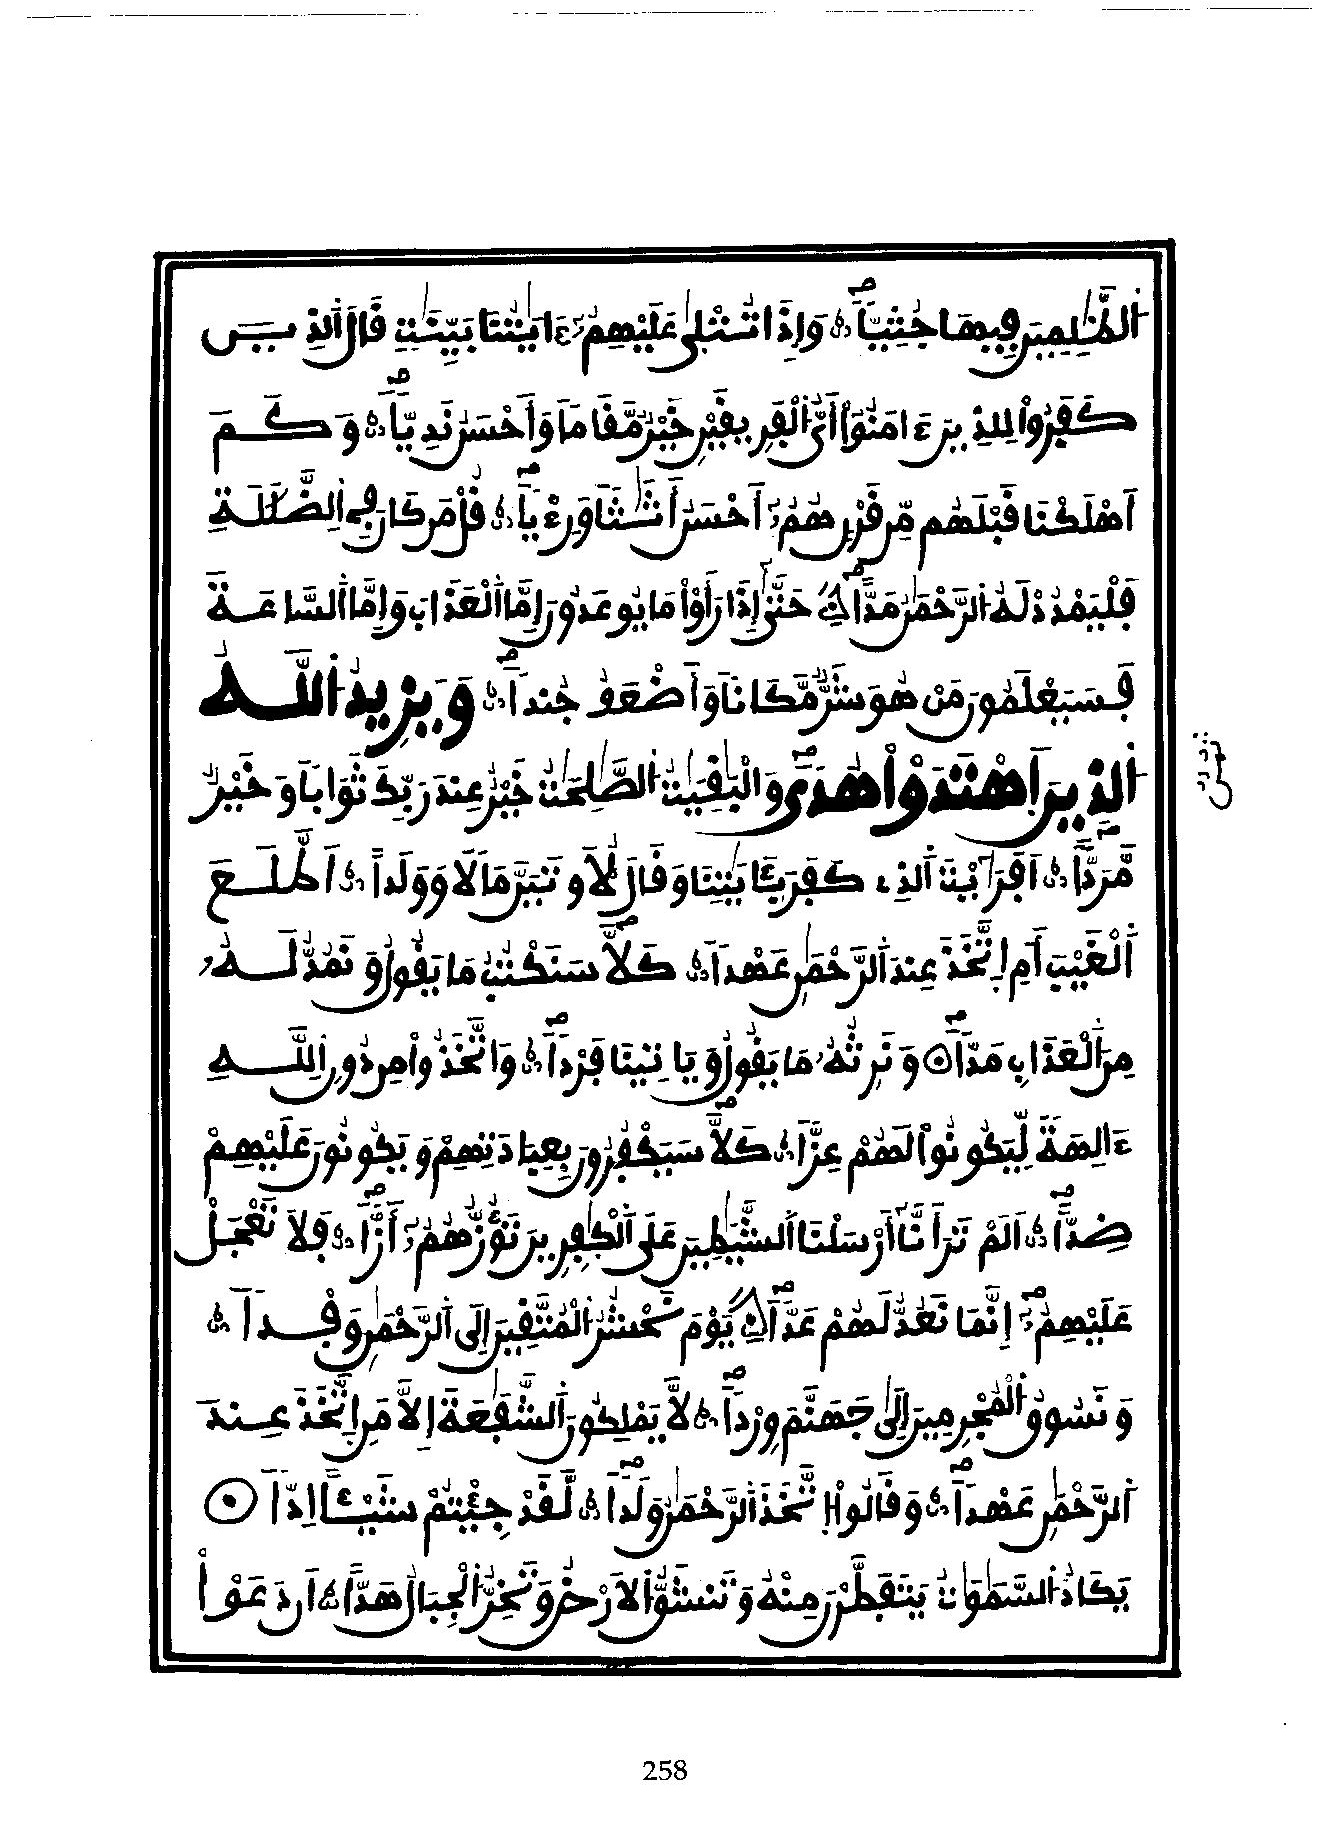 اَلظَّٰلِمِينَ فِيهَا جُثِيّاًۖ وَإِذَا تُتْلَىٰ عَلَيْهِمُۥٓ ءَايَٰتُنَا بَيِّنَٰتٖ قَالَ اَلذِينَ
كَفَرُواْ لِلذِينَ ءَامَنُوٓاْ أَيُّ اُلْفَرِيقَيْنِ خَيْرٞ مَّقَاماٗ وَأَحْسَنُ نَدِيّاٗۖ وَكَمَ
اَهْلَكْنَا قَبْلَهُم مِّن قَرْنٍ هُمُۥٓ أَحْسَنُ أَثَٰثاٗ وَرِءْياٗۖ قُلْ مَن كَانَ فِي اِلضَّلَٰلَةِ
فَلْيَمْدُدْ لَهُ اُلرَّحْمَٰنُ مَدّاًۖ حَتَّىٰٓ إِذَا رَأَوْاْ مَا يُوعَدُونَ إِمَّا اَلْعَذَابَ وَإِمَّا اَلسَّاعَةَ
فَسَيَعْلَمُونَ مَنْ هُوَ شَرّٞ مَّكَاناٗ وَأَضْعَفُ جُنداٗۖ وَيَزِيدُ اُللَّهُ
اُلذِينَ اَهْتَدَوْاْ هُدىٗۖ وَالْبَٰقِيَٰتُ اُلصَّٰلِحَٰتُ خَيْرٌ عِندَ رَبِّكَ ثَوَاباٗ وَخَيْرٞ
مَّرَدّاًۖ اَفَرَٰيْتَ اَلذِي كَفَرَ بِـَٔايَٰتِنَا وَقَالَ لَأُوتَيَنَّ مَالاٗ وَوَلَداًۖ اَطَّلَعَ
اَلْغَيْبَ أَمِ اِتَّخَذَ عِندَ اَلرَّحْمَٰنِ عَهْداٗۖ كَلَّاۖ سَنَكْتُبُ مَا يَقُولُ وَنَمُدُّ لَهُۥ
مِنَ اَلْعَذَابِ مَدّاٗۖ وَنَرِثُهُۥ مَا يَقُولُ وَيَاتِينَا فَرْداٗۖ وَاتَّخَذُواْ مِن دُونِ اِللَّهِ
ءَالِهَةٗ لِّيَكُونُواْ لَهُمْ عِزّاٗ كَلَّاۖ سَيَكْفُرُونَ بِعِبَادَتِهِمْ وَيَكُونُونَ عَلَيْهِمْ
ضِدّاًۖ اَلَمْ تَرَ أَنَّآ أَرْسَلْنَا اَلشَّيَٰطِينَ عَلَى اَلْكٰفِرِينَ تَؤُزُّهُمُۥٓ أَزّاٗ فَلَا تَعْجَلْ
عَلَيْهِمُۥٓۖ إِنَّمَا نَعُدُّ لَهُمْ عَدّاٗۖ يَوْمَ نَحْشُرُ اُلْمُتَّقِينَ إِلَى اَلرَّحْمَٰنِ وَفْداٗ
وَنَسُوقُ اُلْمُجْرِمِينَ إِلَىٰ جَهَنَّمَ وِرْداٗۖ لَّا يَمْلِكُونَ اَلشَّفَٰعَةَ إِلَّا مَنِ اِتَّخَذَ عِندَ
اَلرَّحْمَٰنِ عَهْداٗۖ وَقَالُواْ اُ۪تَّخَذَ اَلرَّحْمَٰنُ وَلَداٗۖ لَّقَدْ جِئْتُمْ شَيْـٔاً اِدّاٗ
يَكَادُ اُلسَّمَٰوَٰتُ يَتَفَطَّرْنَ مِنْهُ وَتَنشَقُّ اُلْأَرْضُ وَتَخِرُّ اُلْجِبَالُ هَدّاً اَن دَعَوْاْ
258